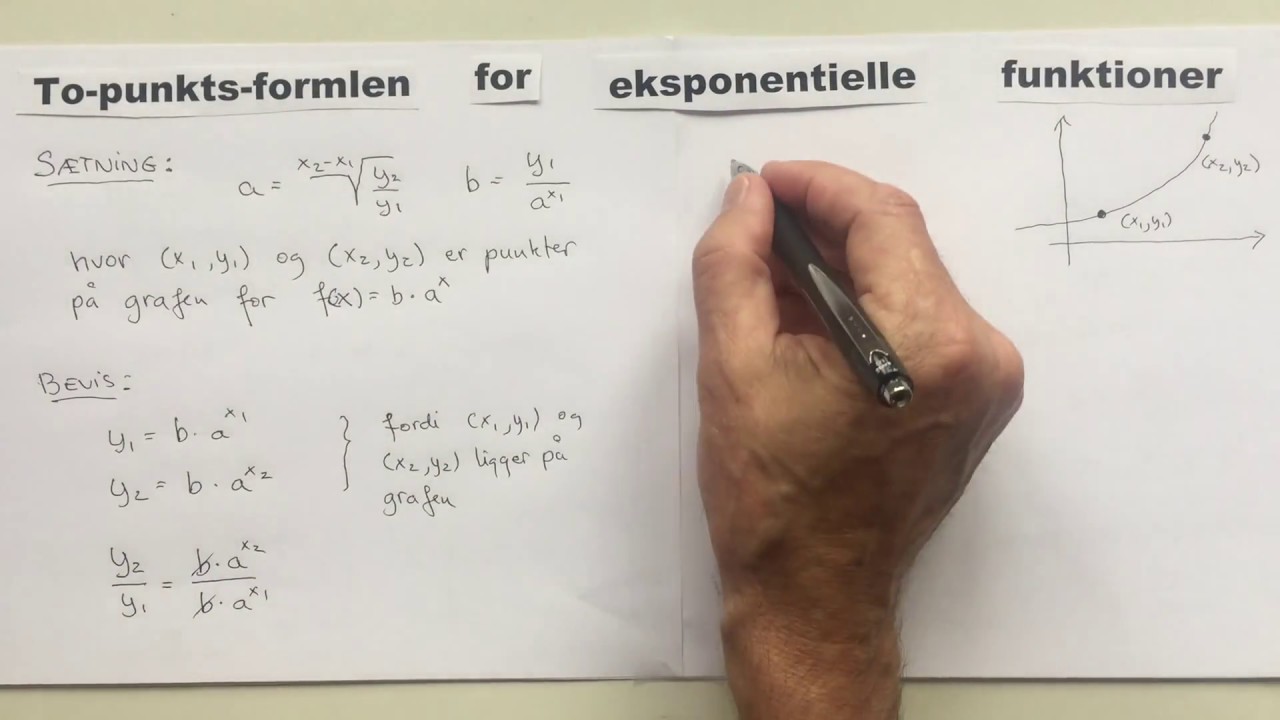 To-punkts-formlen for eksponentielle funktioner
SÆTNING: a = ˣ²⁻ˣ¹√(y₂/y₁) b = y₁/a^x₁
hvor (x₁,y₁) og (x₂,y₂) er punkter
på grafen for f(x) = b · a^x
BEVIS:
y₁ = b · a^x₁
y₂ = b · a^x₂
} fordi (x₁,y₁) og
(x₂,y₂) ligger på
grafen
y₂/y₁ = b · a^x₂ / b · a^x₁
(x₂,y₂)
(x₁,y₁)